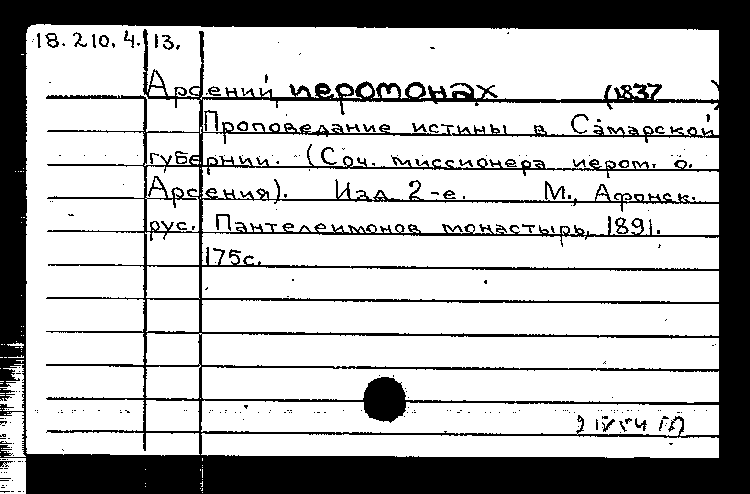 18.210.4.13.
Арсений, иеромонах (1837 )
Проповедание истины в Самарской
губернии. (Соч. миссионера иером. о.
Арсения). Изд 2-е. М., Афонск.
рус. Пантелеимонов монастырь, 1891.
175с.